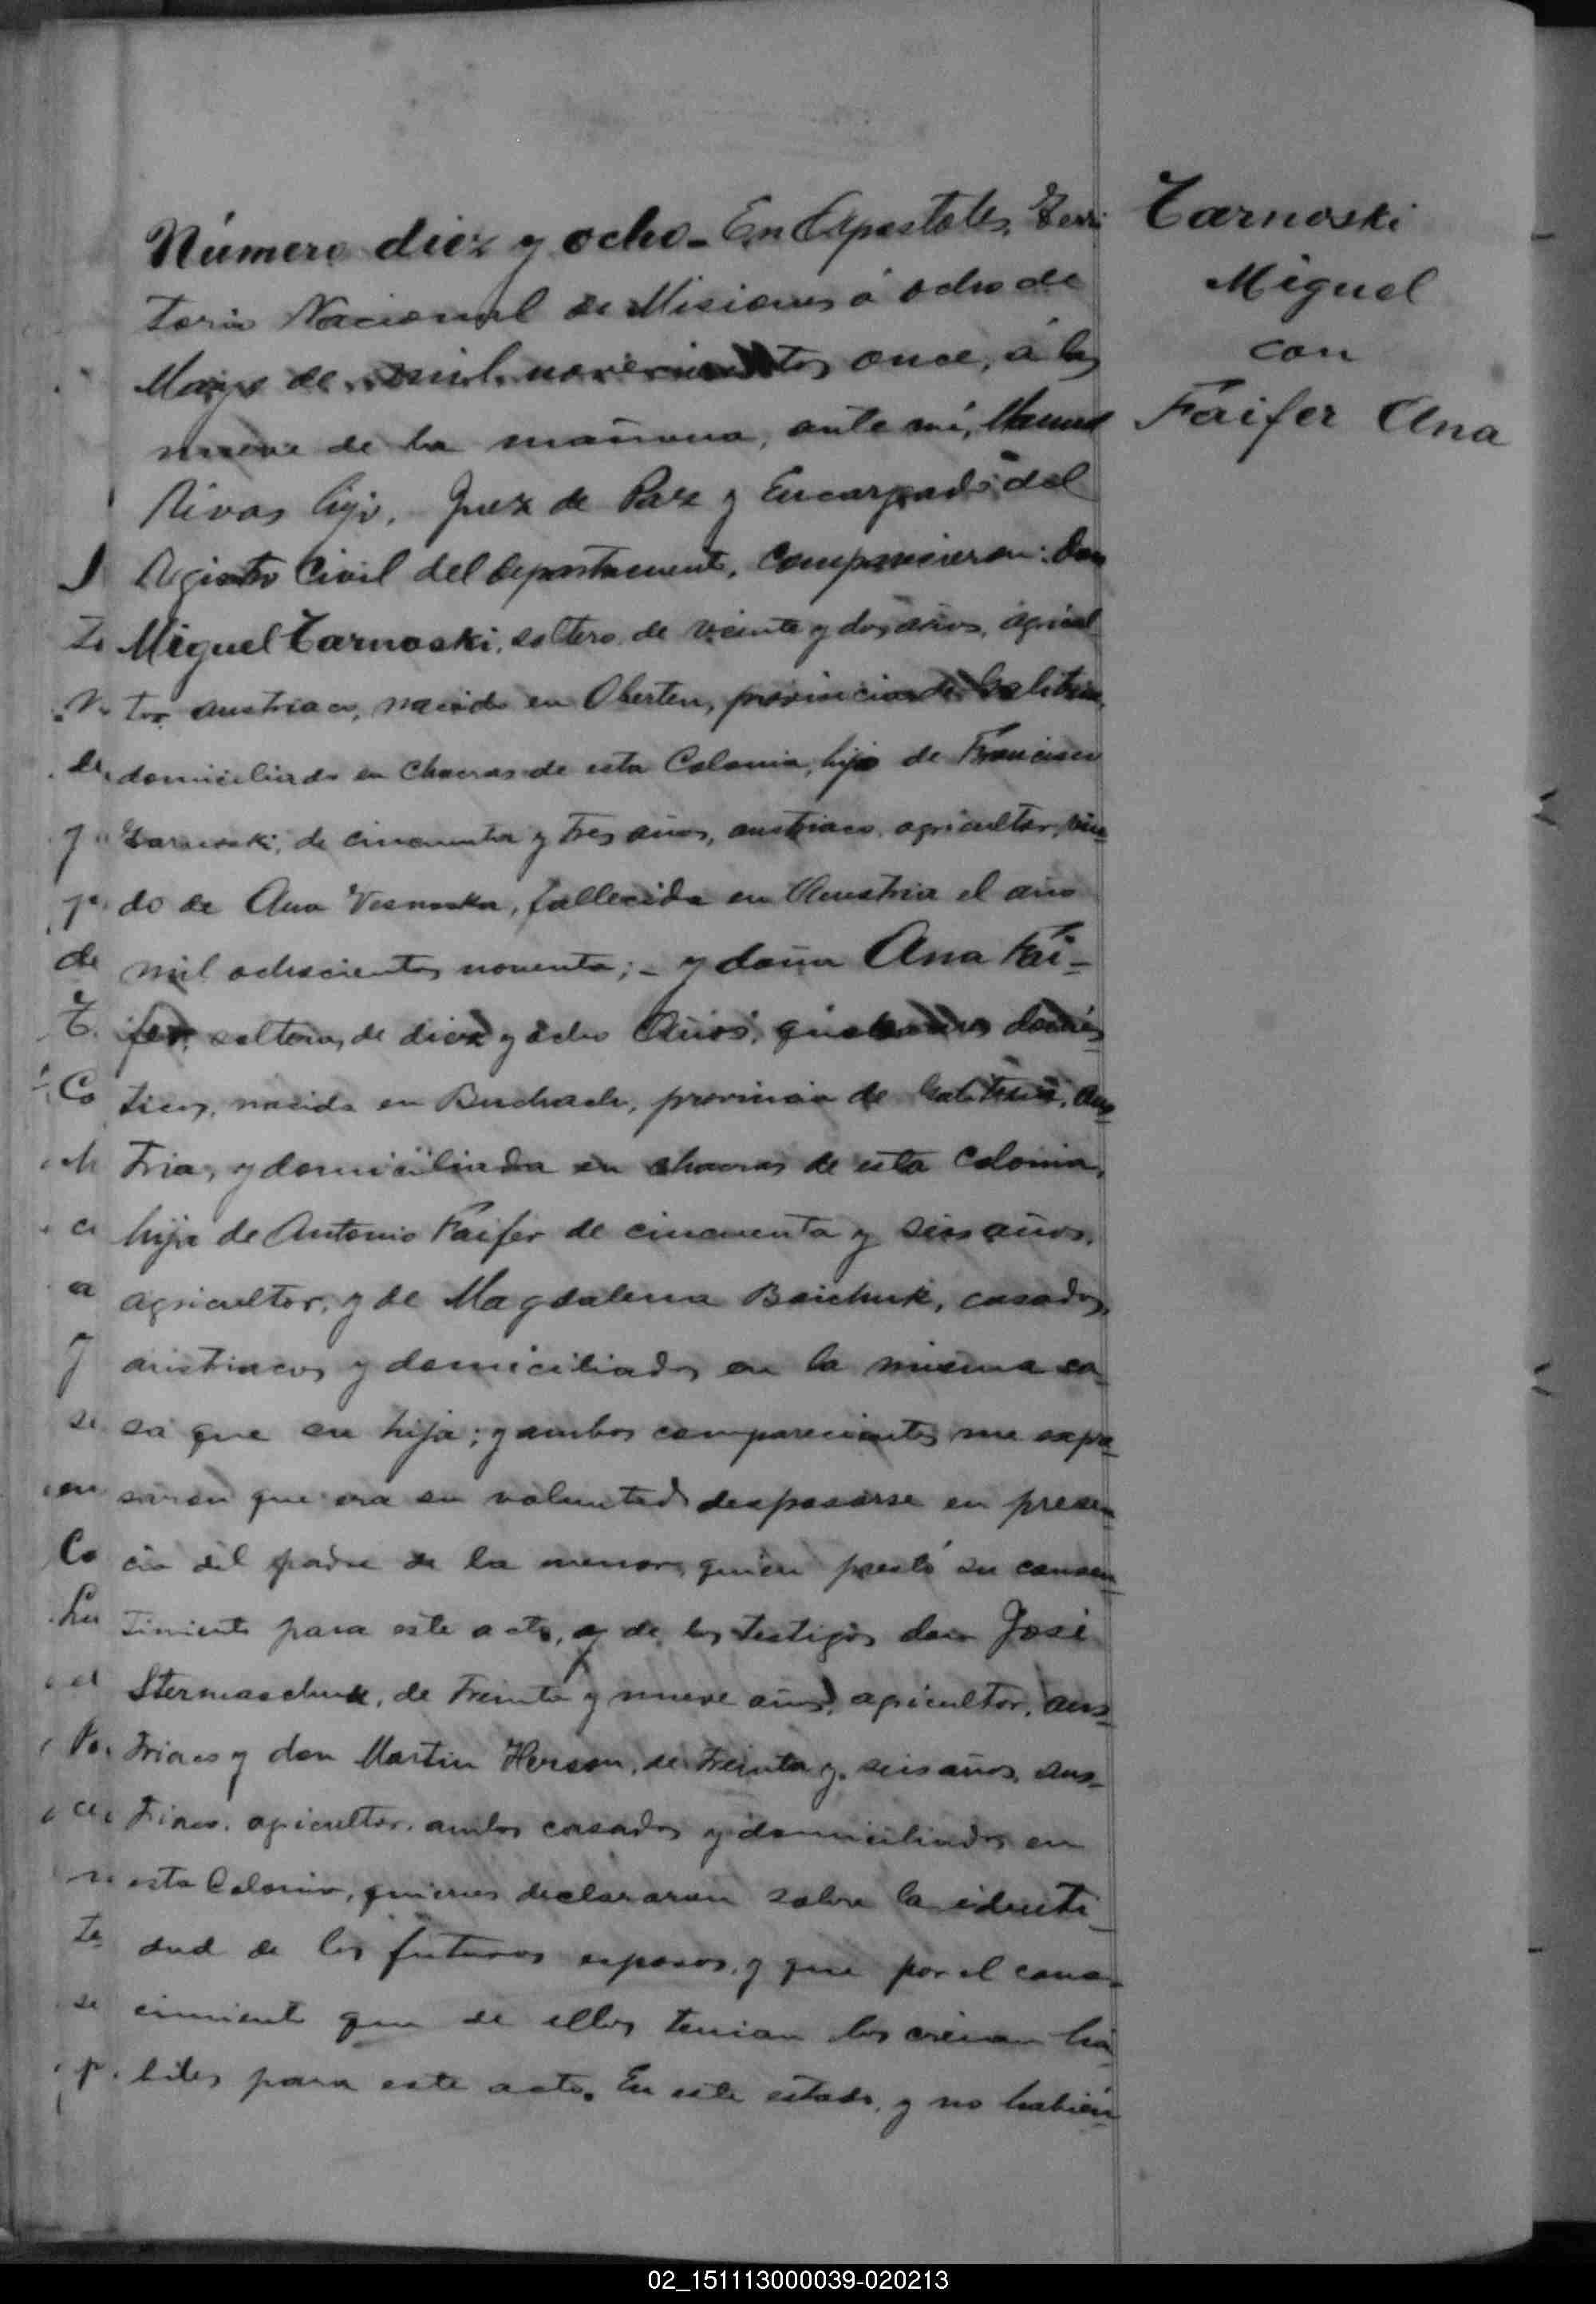 Número diez y ocho - En Apostoles, Terri
torio Nacional de Misiones á ocho de
Mayo de mil novecientos once, á las
nueve de la mañana, ante mí, Manuel
Rivas hijo, Juez de Paz y Encargado del
Registro Civil del departamento, comparecieron: don
Miguel Tarnoski, soltero de veinte y dos años, agricul
tor austriaco, nacido en Oberten, provincia de Galitzia,
domiciliado en chacras de esta Colonia, hijo de Francisco
Tarnoski, de cincuenta y tres años, austriaco, agricultor, viu-
do de Ana, fallecida en Austria el año
mil ochocientos noventa; - y doña Ana Fai-
fer, soltera, de diez y ocho años, quehaceres domés
ticos, nacida en Buchach, provincia de Galitzia, Aus
tria, y domiciliada en chacras de esta Colonia,
hija de Antonio Faifer de cincuenta y seis años,
agricultor, y de Magdalena Baichuk, casados,
austriacos y domiciliados en la misma ca-
sa que su hija; y ambos comparecientes me expre
saron que era su voluntad desposarse en presen
cia del padre de la menor, quien prestó su consen
timiento para este acto, y de los testigos don José
Stermaschuk, de treinta y nueve años, agricultor, aus-
triaco y don Martin Herson, de treinta y seis años, aus-
triaco, agricultor, ambos casados y domiciliados en
esta Colonia, quienes declararon sobre la identi-
dad de los futuros esposos, y que por el cono-
cimiento que de ellos tenian los creian há
biles para este acto. En este estado, y no habien
Tarnoski
Miguel
con
Faifer Ana
02_151113000039-020213